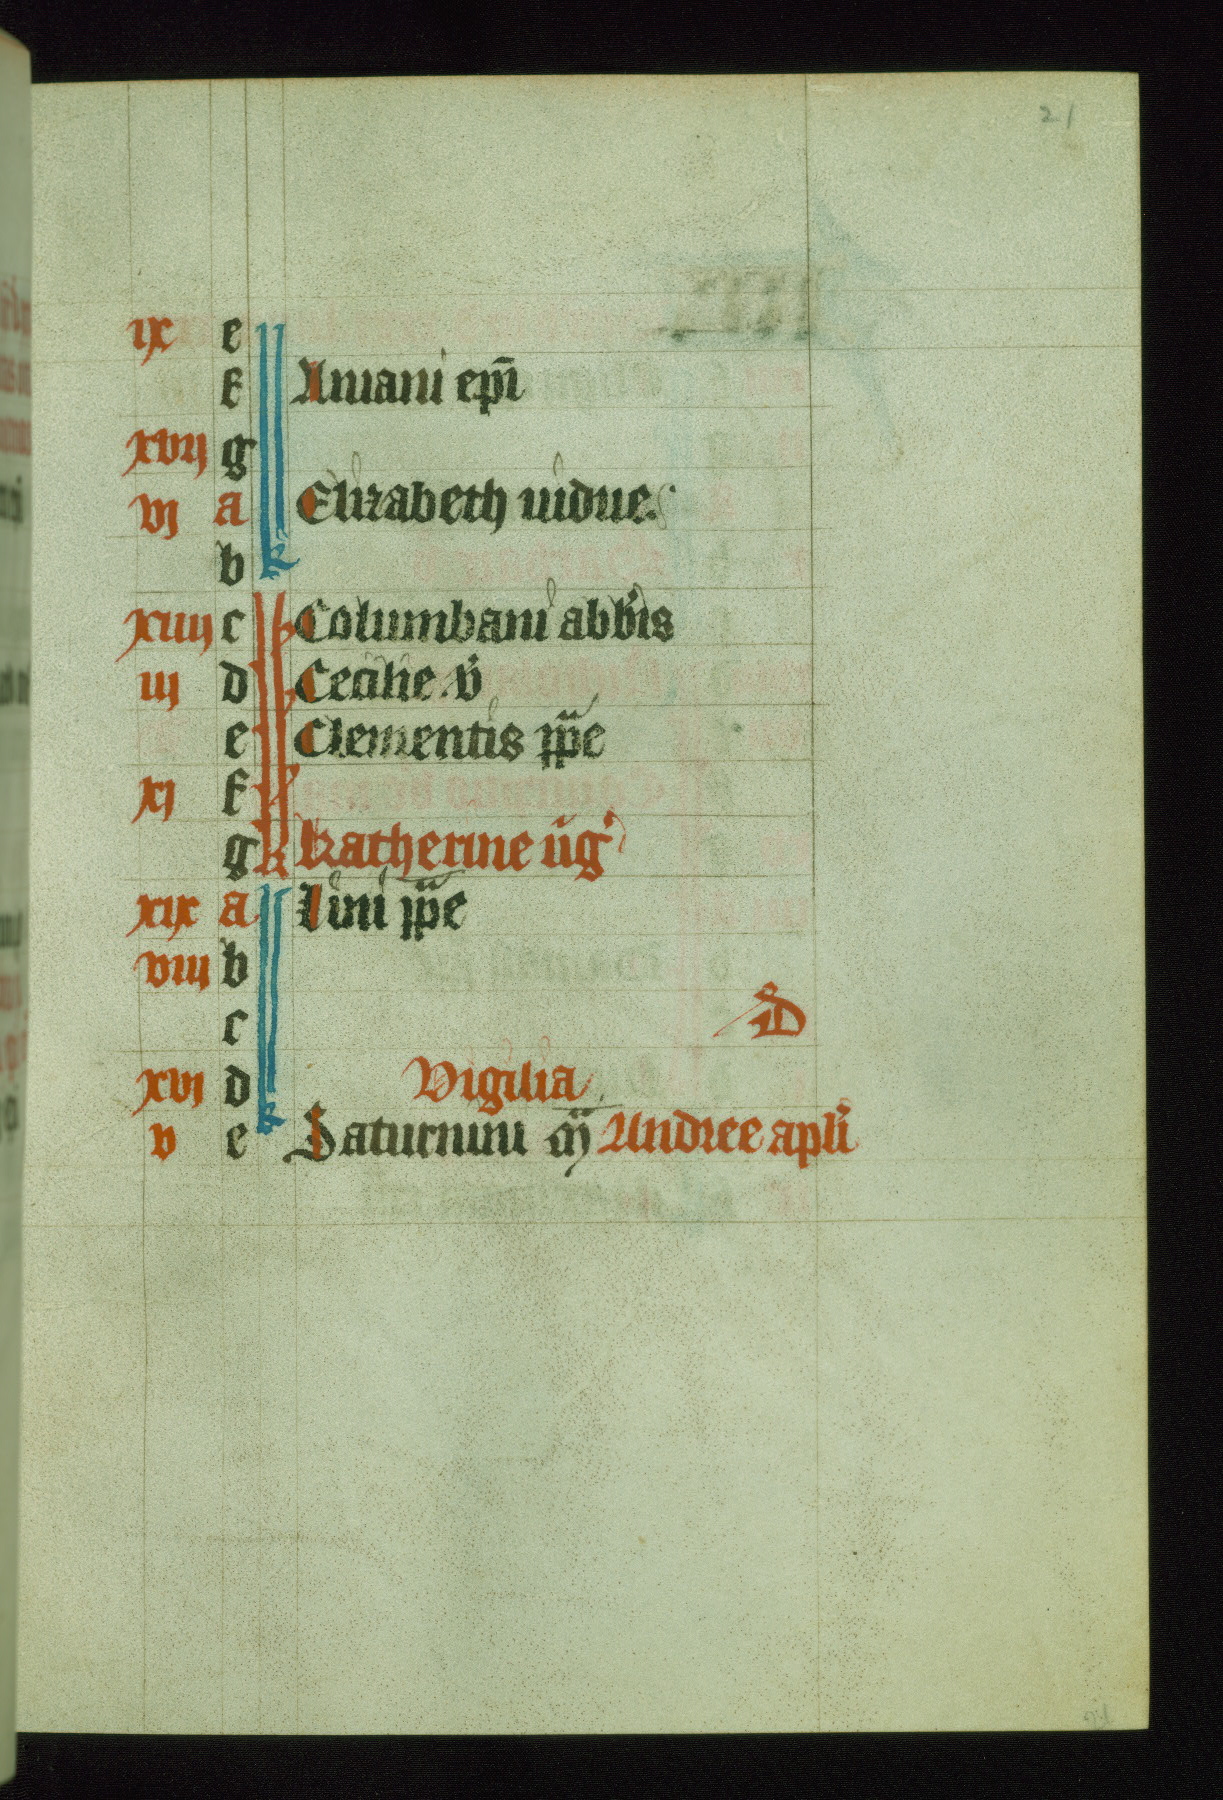 21
ix e
f Aniani ep̄i
xvij g
vj a Elizabeth uidue.
b
xiiij c Columbani abb̄is
iij d Cecilie . v̄
e Clementis pp̄e
xj f
g Katherine ūg̓
xix a Lini pp̄e
viij b
c
D
xvj d Vigilia
v e Saturnini m̄ Andree apl̄i